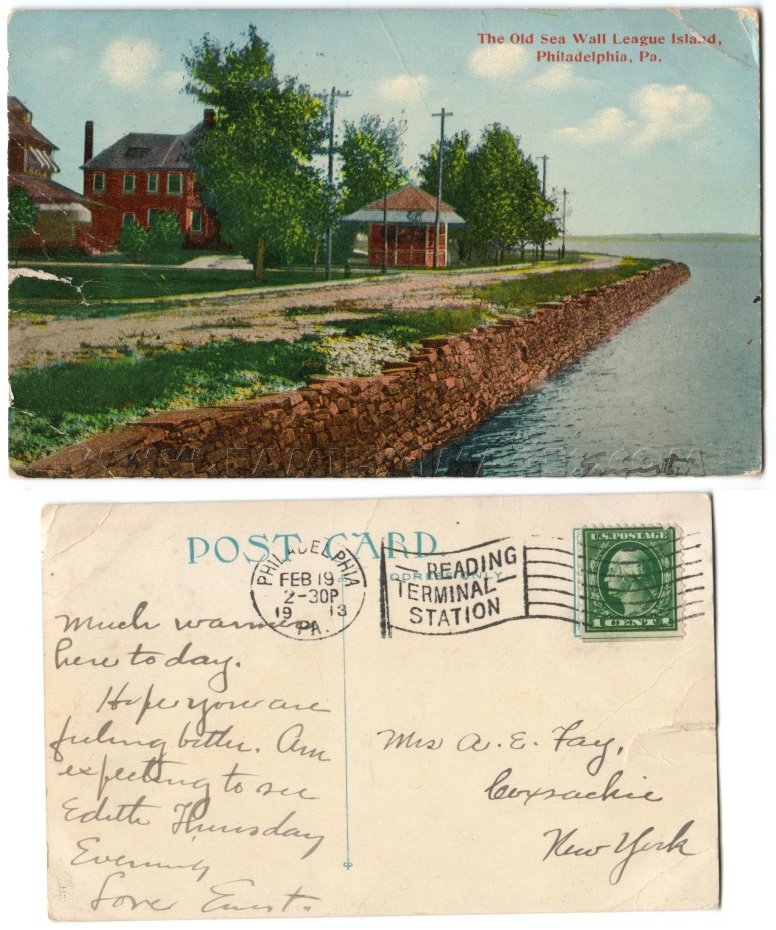 The Old Sea Wall League Island,
Philadelphia, Pa.
POST CARD
ADDRESS ONLY
PHILADELPHIA
FEB 19
2-30P
19 13
PA.
READING
TERMINAL
STATION
U.S. POSTAGE
1 CENT 1
Much warmer
here today.
Hope you are
feeling better. Am
expecting to see
Edith Thursday
Evening
Love Ernest.
Mrs A. E. Fay,
Coxsackie
New York